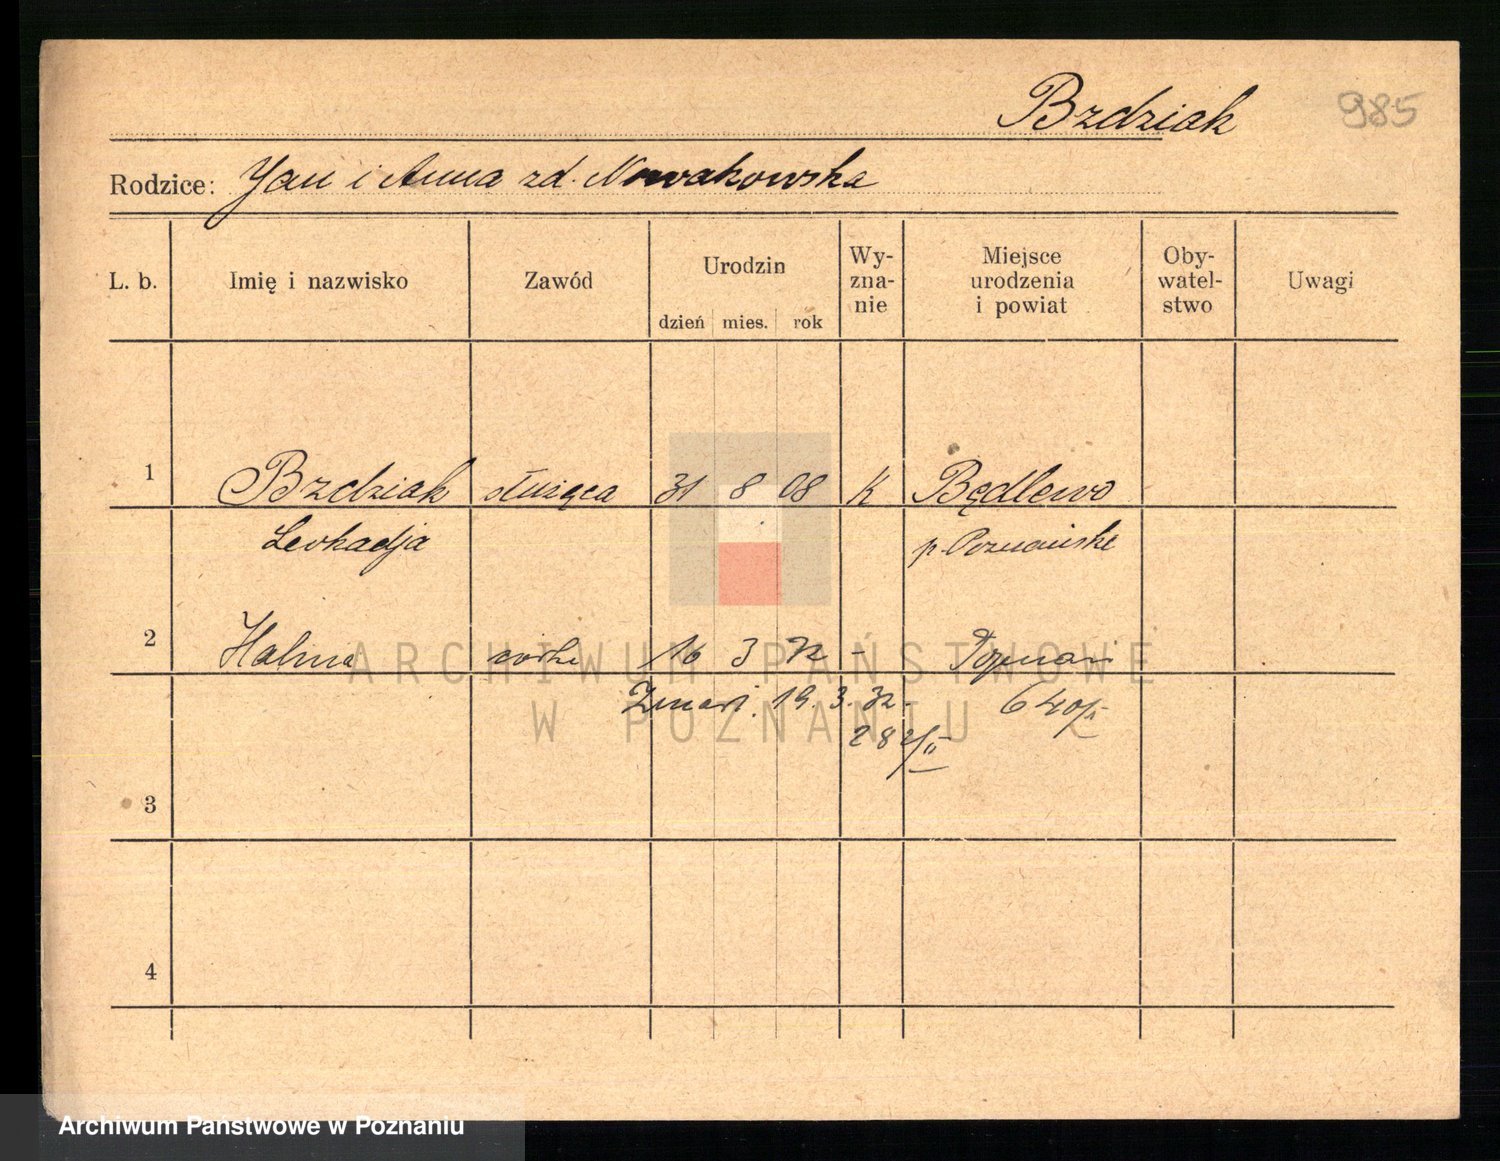 Bzdziak 985
Rodzice: Jan i Anna zd. Nowakowska
L. b. Imię i nazwisko Zawód Urodzin Wy-
zna-
nie Miejsce
urodzenia
i powiat Oby-
watel-
stwo Uwagi
dzień mies. rok
1 Bzdziak służąca 31 8 08 K Będlewo
Leokadja p. Poznański
2 Halina córka 16 3 32 - Poznań
Zmarł. 19.3.32. 640/I
282/II
3
4
ARCHIWUM PAŃSTWOWE
W POZNANIU
Archiwum Państwowe w Poznaniu